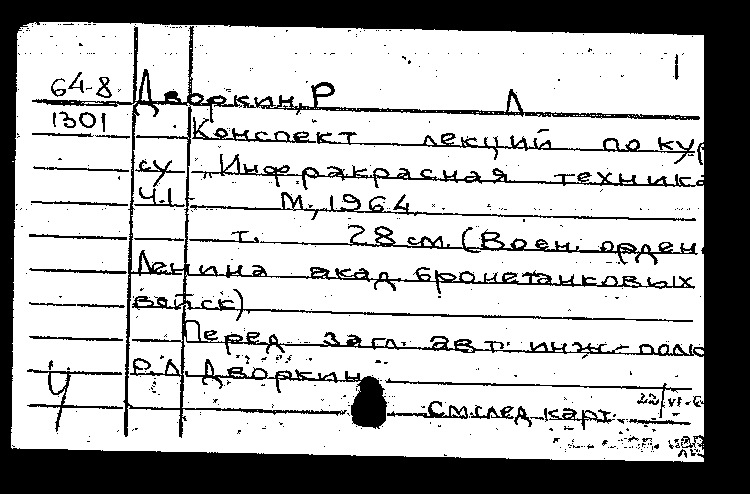 1
64-8 Дворкин, Р Л
1301 Конспект лекций по кур
су „Инфракрасная техника
Ч.1 М., 1964
т. 28 см. (Воен. орден.
Ленина акад. бронетанковых
войск)
Перед загл. авт: инж.-полк
Р.Л. Дворкин
Ч см. след карт.